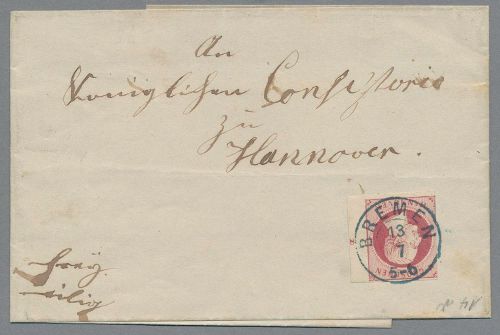 An
Königlichen Consistorio
zu
Hannover.
BREMEN
13
7
5-6
frey
eilig